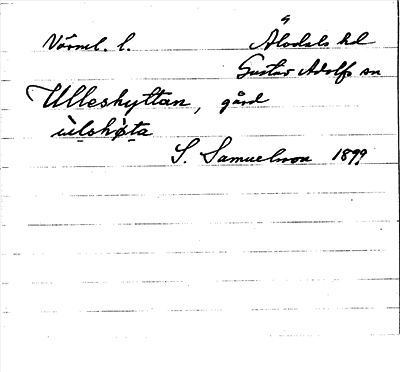 Värml. l. Älvdals hd
Gustav Adolfs sn
Ulleshyttan, gård
S. Samuelsson 1899